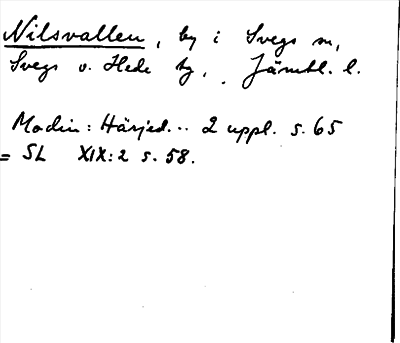 Nilsvallen, by i Svegs sn,
Svegs o. Hede tg, Jämtl. l.
Modin: Härjed... 2 uppl. s. 65
= SL XIX:2 s. 58.